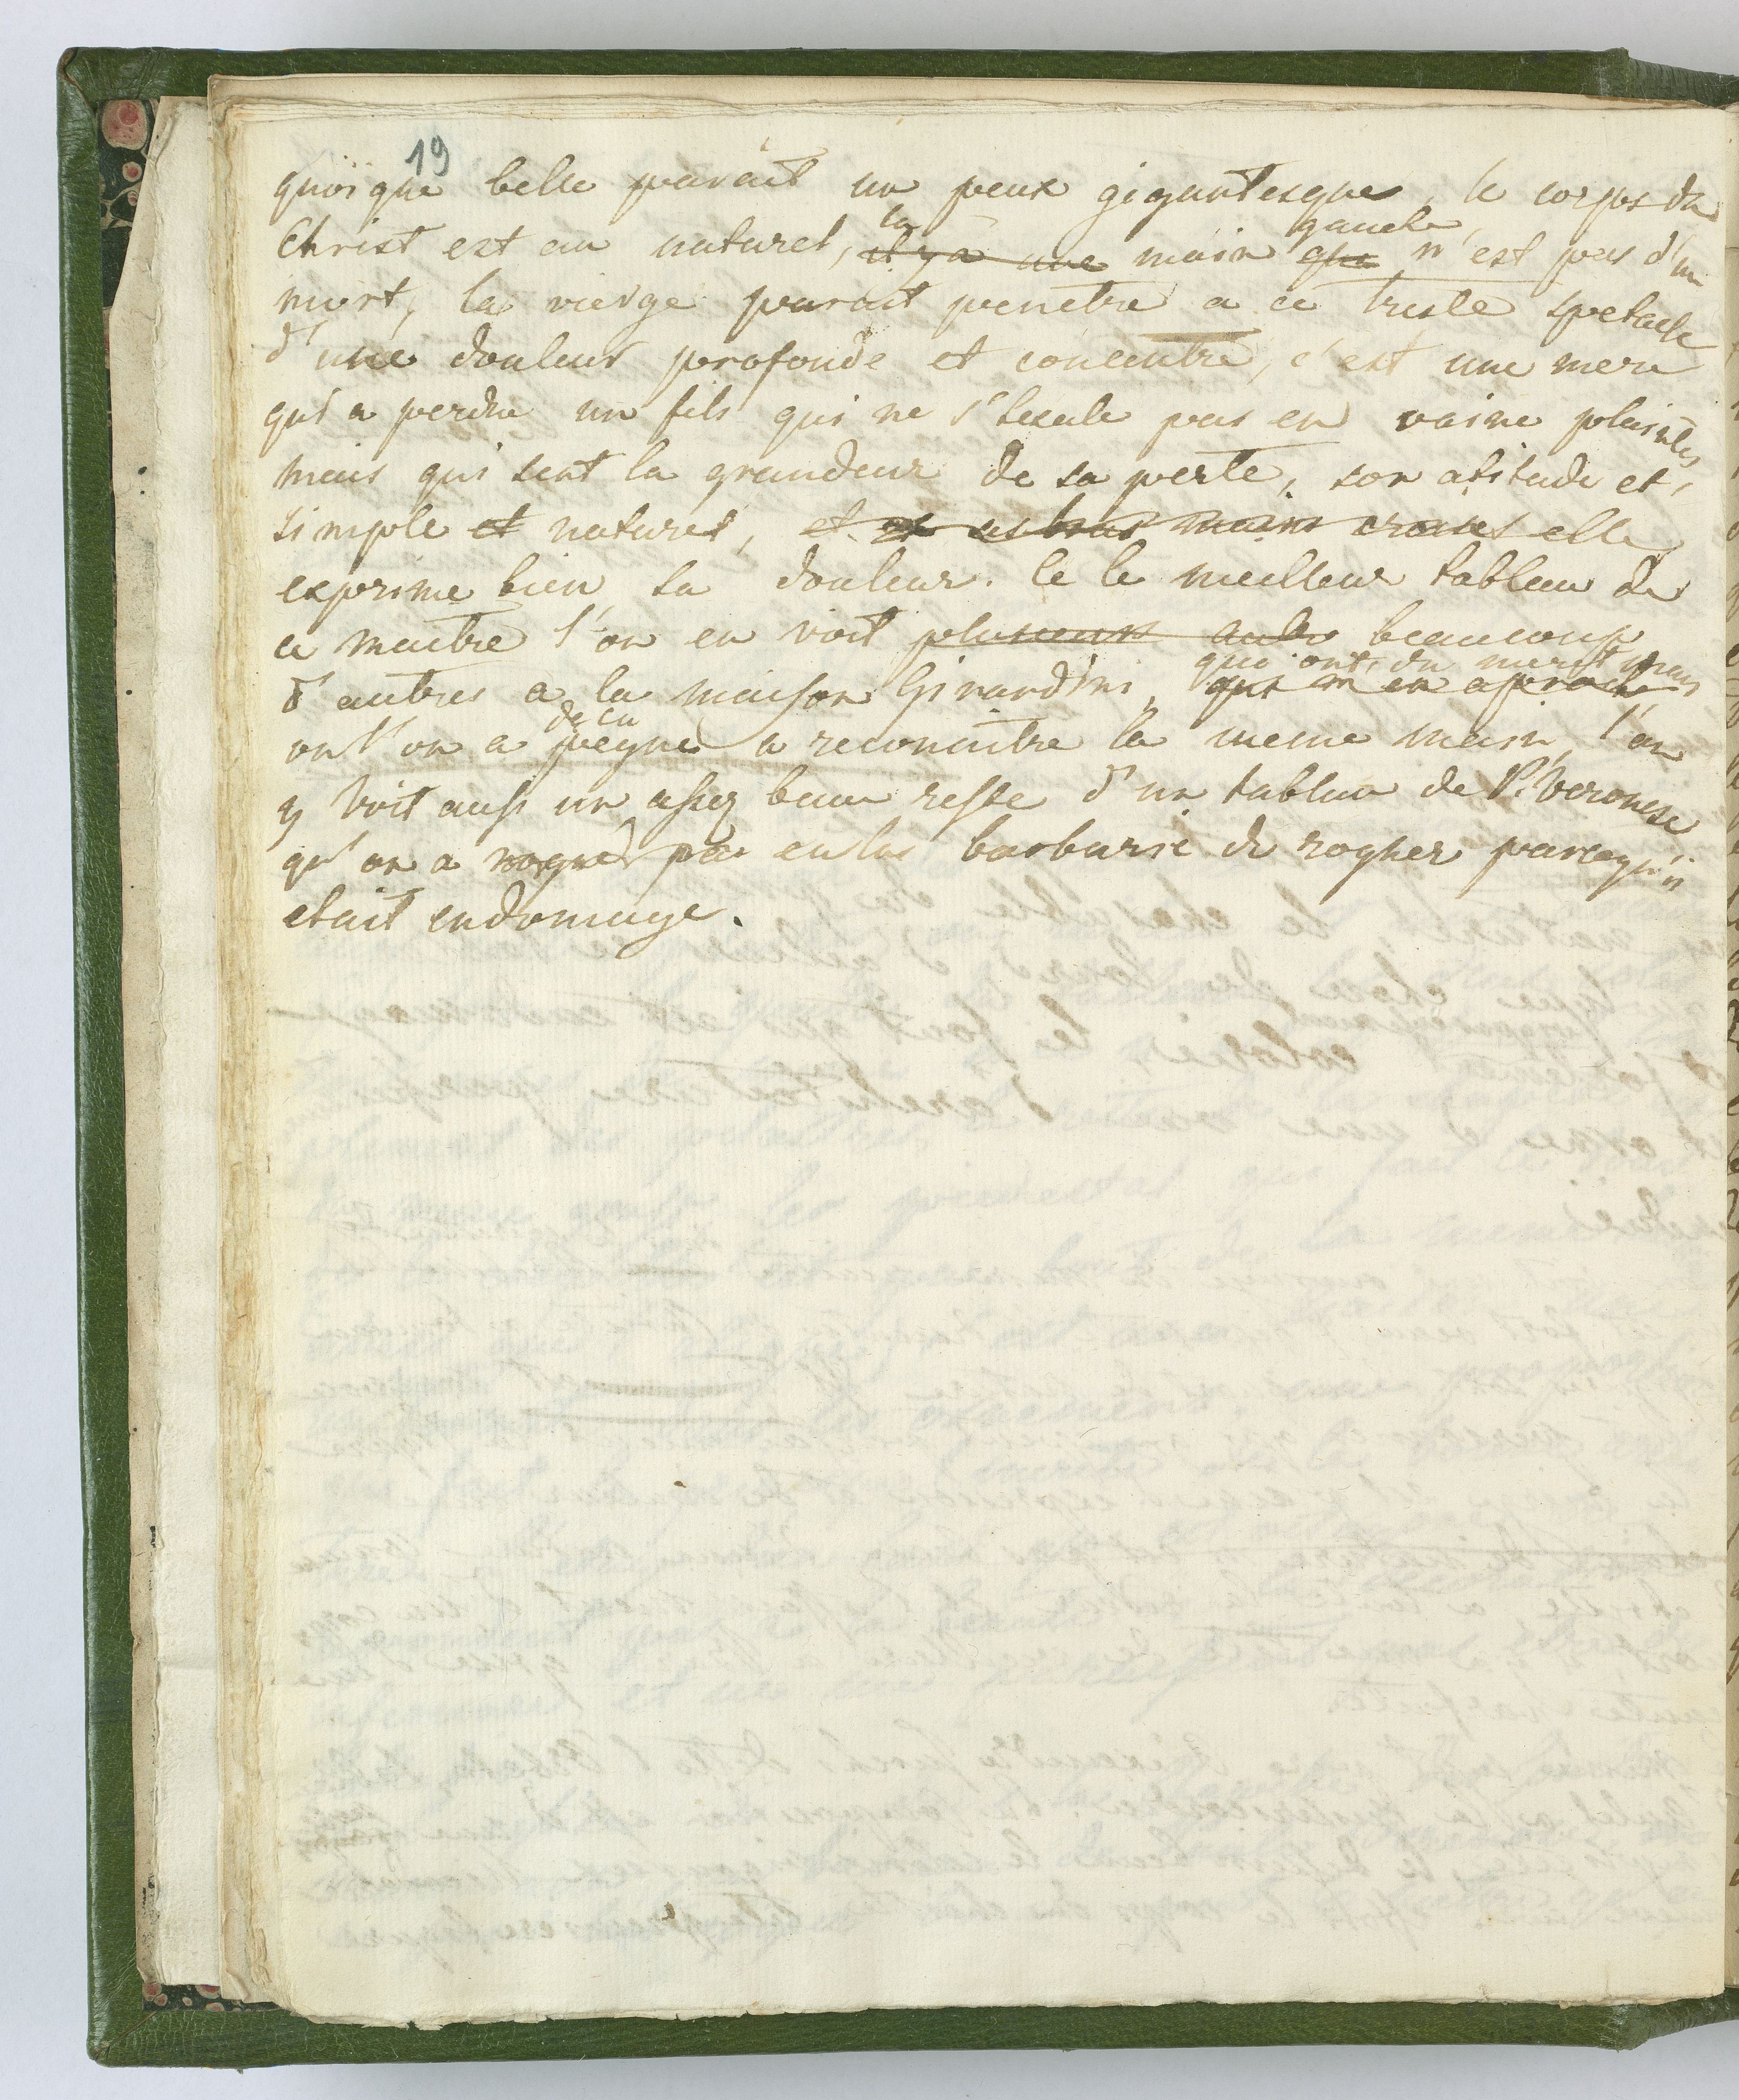 19
quoique belle parait un peux gigantesque, le corps du
Christ est au naturel, il y a une la main que gauche n'est pas d'un
mort, la vierge parait penetre a ce triste spetacle
d'une douleur profonde et concentre, c'est une mere
qui a perdu un fils qui ne s'hexale pas en vaine plaintes
mais qui sent la grandeur de sa perte, son atitude et,
simple et naturel, et ses bras mains croises elle
exprime bien sa douleur. Ce le meilleur tableau de
ce maitre l'on en voit plusieurs autre beaucoup
d'autres a la maison Girardini, qui n'en aproche qui ont du merit mais
ou l'on a de la peyne a reconnaitre la meme main, l'on
y voit aussi un assez beau reste d'un tableau de P. Veronese
qu'on a rogne par eu la barbarie de rogner parcequ'il
etait endomage.